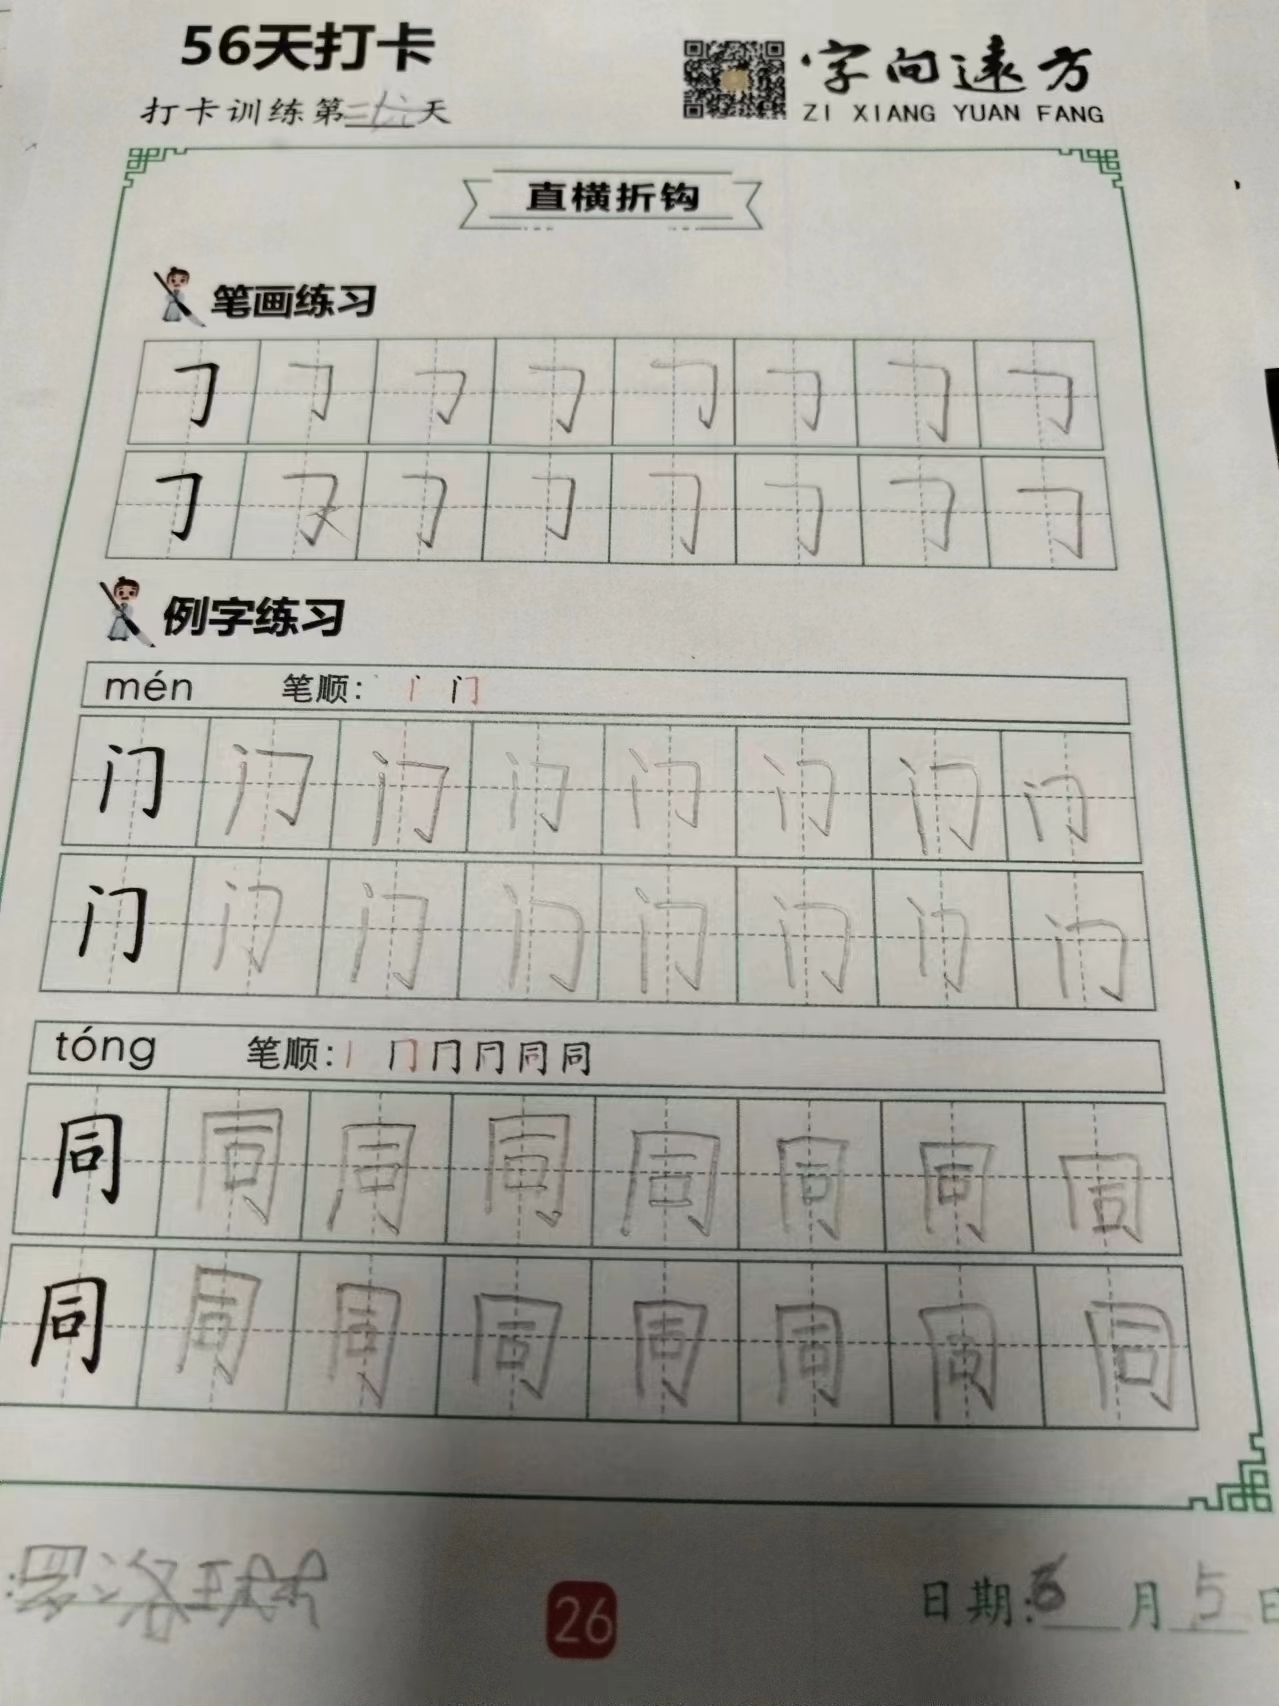 56天打卡
字向遠方
打卡训练第二十六天
ZI XIANG YUAN FANG
直横折钩
笔画练习
例字练习
mén 笔顺: 丨 门
门 门 门 门 门 门 门 门
门 门 门 门 门 门 门 门
tóng 笔顺: 丨 冂 冂 冂 同 同
同 同 同 同 同 同 同 同
同 同 同 同 同 同 同 同
26
日期: 6 月 5 日